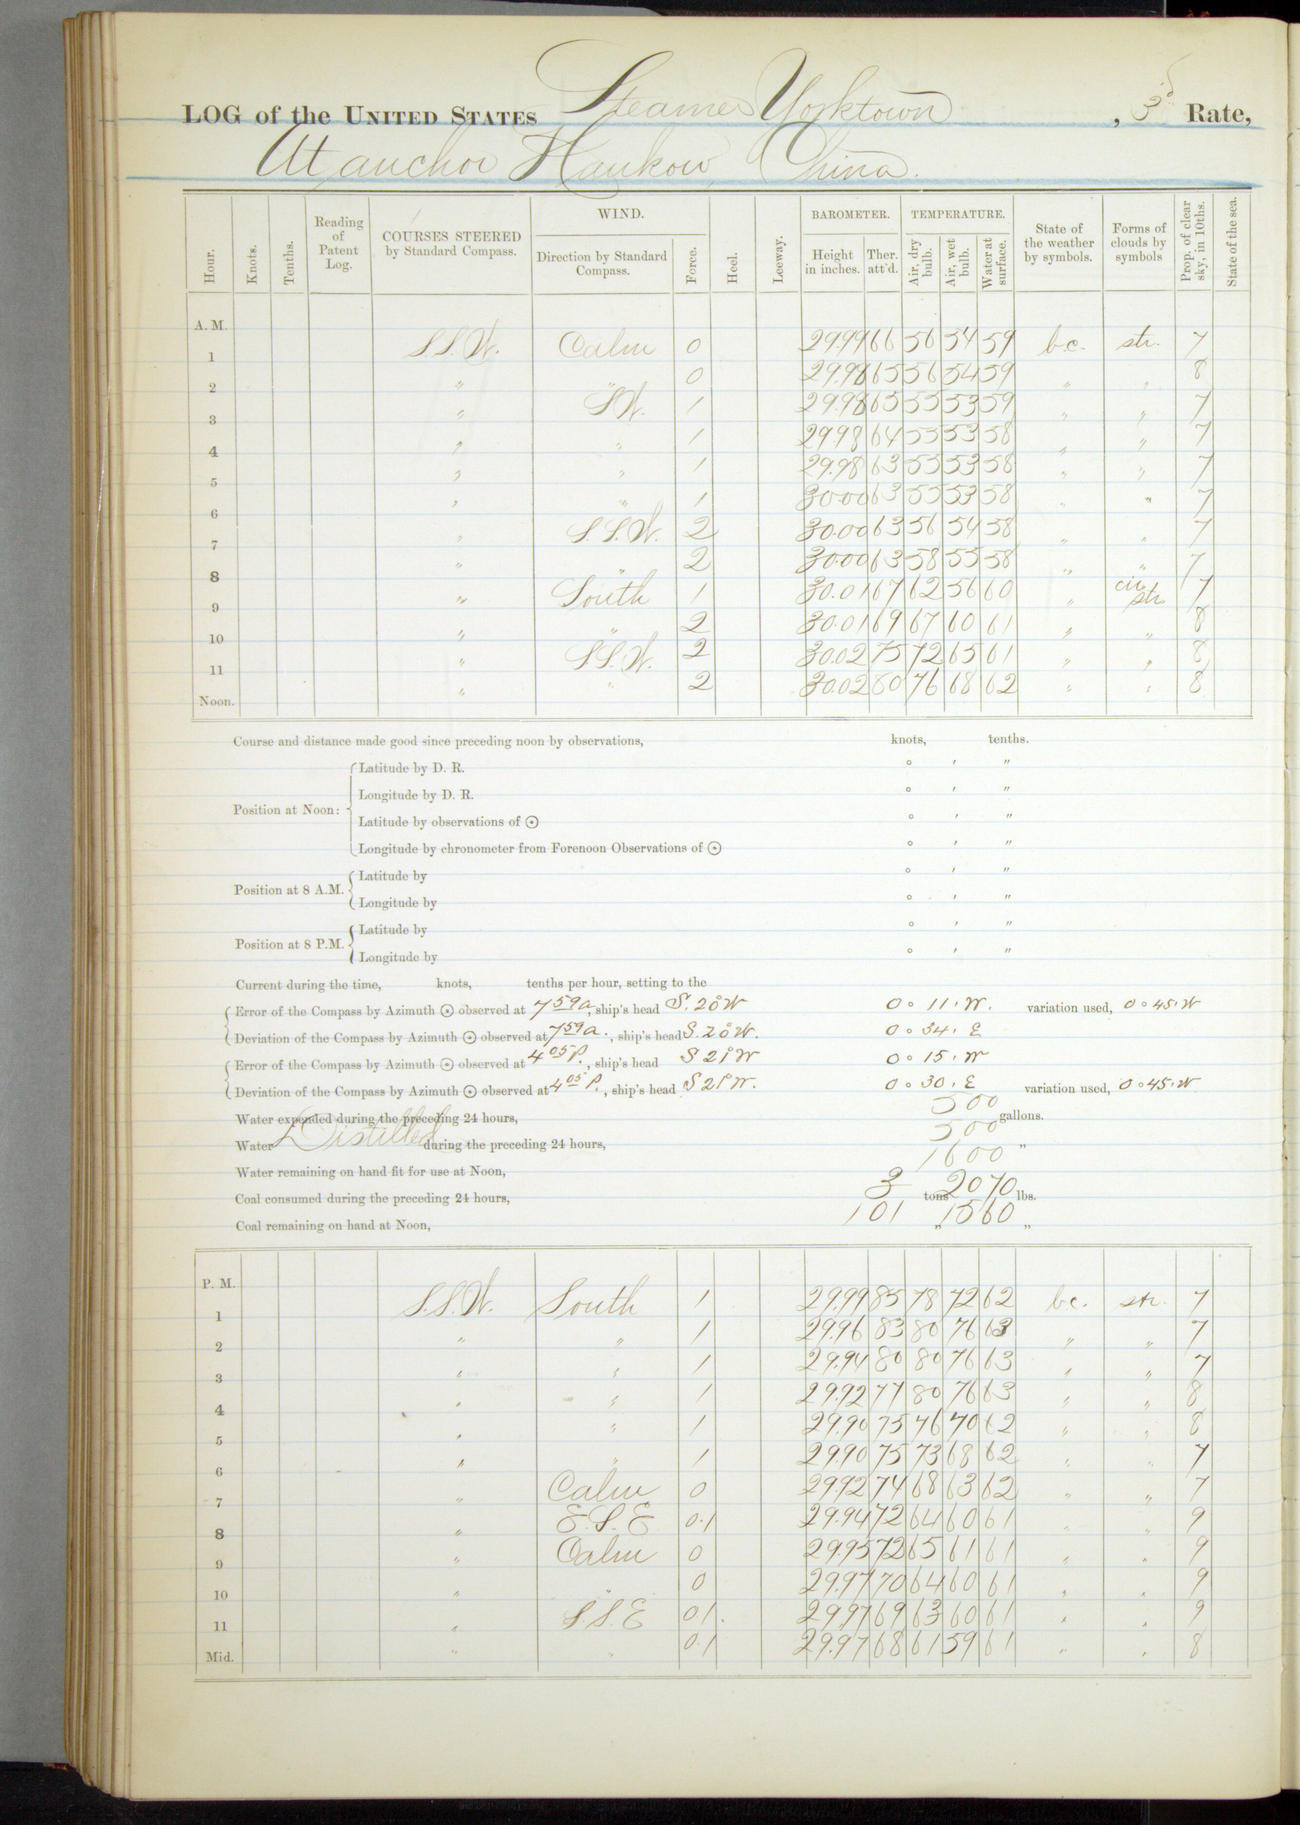 LOG of the UNITED STATES Steamer Yorktown, 3d Rate,
At anchor Hankow, China.
Hour. Knots. Tenths. Reading of Patent Log. COURSES STEERED by Standard Compass. WIND. Direction by Standard Compass. Force. Heel. Leeway. BAROMETER. Height in inches. Ther. att'd. TEMPERATURE. Air, dry bulb. Air, wet bulb. Water at surface. State of the weather by symbols. Forms of clouds by symbols Prop. of clear sky, in 10ths. State of the sea.
A. M.
1 S.S.W. Calm 0 29.99 66 56 54 59 b.c. str. 7
2 " " 0 29.98 65 56 54 59 " " 8
3 " SW. 1 29.98 65 55 53 59 " " 7
4 " " 1 29.98 64 55 53 58 " " 7
5 " " 1 29.98 63 55 53 58 " " 7
6 " " 1 30.00 63 55 53 58 " " 7
7 " S.S.W. 2 30.00 63 56 54 58 " " 7
8 " " 2 30.00 63 58 55 58 " " 7
9 " South 1 30.01 67 62 56 60 " cir. str. 7
10 " " 2 30.01 69 67 60 61 " " 8
11 " S.S.W. 2 30.02 75 72 65 61 " " 8
Noon. " " 2 30.02 80 76 68 62 " " 8
Course and distance made good since preceding noon by observations, knots, tenths.
Position at Noon: Latitude by D. R. ° ′ ″
Longitude by D. R. ° ′ ″
Latitude by observations of ☉ ° ′ ″
Longitude by chronometer from Forenoon Observations of ☉ ° ′ ″
Position at 8 A.M. Latitude by ° ′ ″
Longitude by ° ′ ″
Position at 8 P.M. Latitude by ° ′ ″
Longitude by ° ′ ″
Current during the time, knots, tenths per hour, setting to the
Error of the Compass by Azimuth ☉ observed at 7 59 a, ship's head S. 20° W 0 ° 11 ′ W. variation used, 0 ° 45 ′ W
Deviation of the Compass by Azimuth ☉ observed at 7 59 a., ship's head S. 20° W. 0 ° 34 ′ E
Error of the Compass by Azimuth ☉ observed at 4 05 P., ship's head S 21° W 0 ° 15 ′ W
Deviation of the Compass by Azimuth ☉ observed at 4 05 P., ship's head S 21° W. 0 ° 30 ′ E variation used, 0 ° 45 ′ W
Water expended during the preceding 24 hours, 500 gallons.
Water Distilled during the preceding 24 hours, 500 "
Water remaining on hand fit for use at Noon, 1600
Coal consumed during the preceding 24 hours, 3 tons 2070 lbs.
Coal remaining on hand at Noon, 101 " 1560 "
P. M.
1 S.S.W. South 1 29.99 85 78 72 62 b.c. str. 7
2 " " 1 29.96 83 80 76 63 " " 7
3 " " 1 29.94 80 80 76 63 " " 7
4 " " 1 29.92 77 80 76 63 " " 8
5 " " 1 29.90 75 76 70 62 " " 8
6 " " 1 29.90 75 73 68 62 " " 7
7 " Calm 0 29.92 74 68 63 62 " " 7
8 " E.S.E 0.1 29.94 72 64 60 61 " " 9
9 " Calm 0 29.95 72 65 61 61 " " 9
10 " " 0 29.97 70 64 60 61 " " 9
11 " S.S.E 0.1. 29.97 69 63 60 61 " " 9
Mid. " " 0.1 29.97 68 61 59 61 " " 8